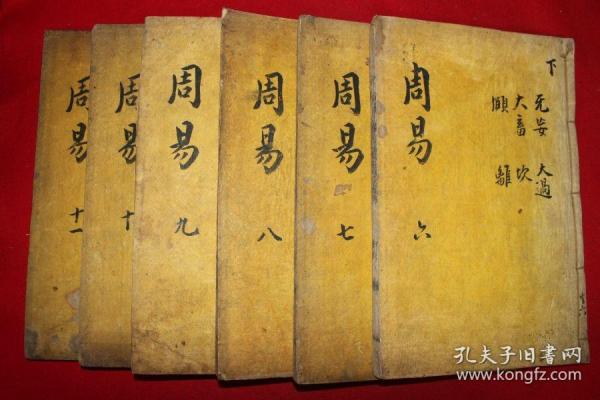 下
无妄 大過
大畜 坎
頤 離
周易 六
周易 七
周易 八
周易 九
周易 十
周易 十一
孔夫子旧书网
www.kongfz.com